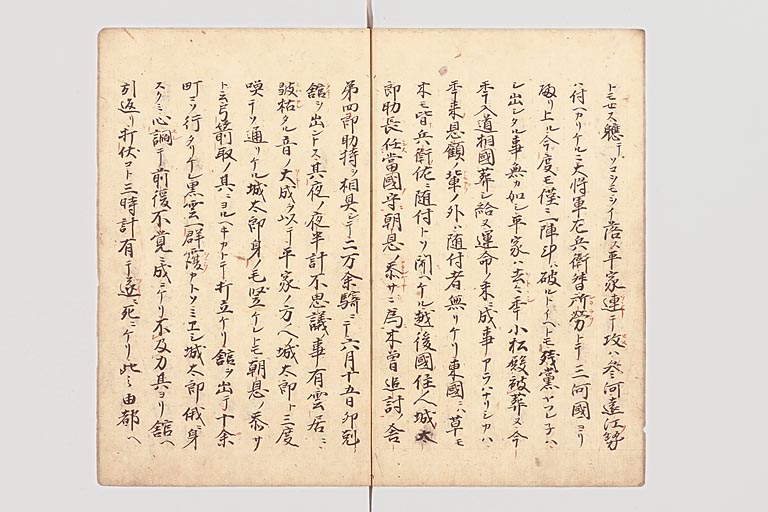 トモセス聽テソコシモシナ落ス平家連テ攻ハ参河遠江勢
ハ付ヘカリケルニ大将軍左兵衛督所勞トテ三河國ヨリ
被リ上ル今度モ僅ニ一陣即破ルトイヘトモ残黨ヤマ子ハ
シ出シタル事無カ如シ平家ハ去シ年小松殿被葬ヌ今
年入道相國葬シ給ヌ運命ノ末ニ成事アラハナリシカハ
年来恩顧ノ輩ノ外ハ随付者無リケリ東國ニハ草モ
木モ皆兵衛佐ニ随付トソ聞ヘケル越後國住人城太
郎助長任當國守朝恩ノ忝サニ為木曽追討ノ舎
第四郎助持ヲ相具シテ二万余騎ニテ六月十五日卯剋
舘ヲ出ントス其夜ノ夜半計不思議ノ事有雲居ニ
皺枯タル音ノ大成ヲ以テ平家ノ方ヘ城太郎ト三度
喚テソ通リケル城太郎身ノ毛竪ケレトモ朝恩ノ忝サ
ト云弓箭取ノ具ニヨルヘキカトテ打立ケリ舘ヲ出テ十余
町ソ行タリケル黒雲一群覆カトソミエシ城太郎俄ニ身
スクミ心調テ前後不覚ニ成ニケリ不及力其ヨリ舘ヘ
引返リ打伏コト三時計有テ遂ニ死ニケリ此ノ由都ヘ